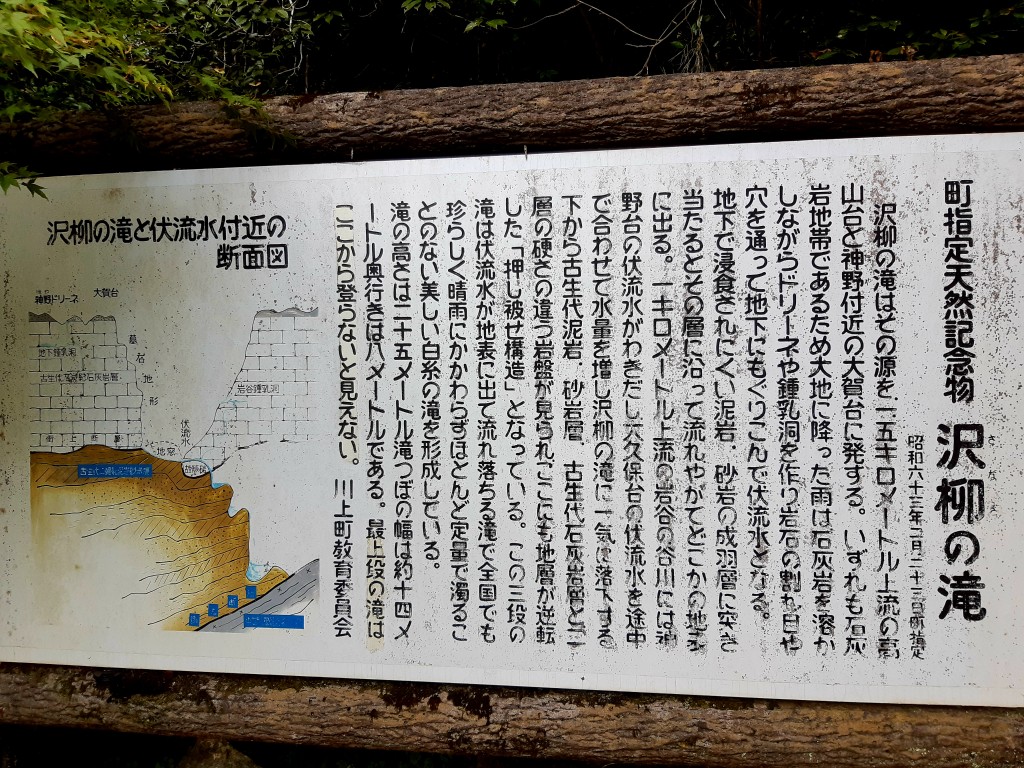 町指定天然記念物 沢柳の滝
昭和六十三年二月二十三日町指定
沢柳の滝はその源を一五キロメートル上流の高
山台と神野付近の大賀台に発する。いずれも石灰
岩地帯であるため大地に降った雨は石灰岩を溶か
しながらドリーネや鍾乳洞を作り岩石の割れ目や
穴を通って地下にもぐりこんで伏流水となる。
地下で浸食されにくい泥岩、砂岩の成羽層に突き
当たるとその層に沿って流れやがてどこかの地表
に出る。一キロメートル上流の岩谷の谷川には神
野台の伏流水がわきだし大久保台の伏流水を途中
で合わせて水量を増し沢柳の滝に一気に落下する
下から古生代泥岩、砂岩層、古生代石灰岩層と二
層の硬さの違う岩盤が見られここにも地層が逆転
した「押し被せ構造」となっている。この三段の
滝は伏流水が地表に出て流れ落ちる滝で全国でも
珍らしく晴雨にかかわらずほとんど定量で濁るこ
とのない美しい白糸の滝を形成している。
滝の高さは二十五メートル滝つぼの幅は約十四メ
ートル奥行きは八メートルである。最上段の滝は
ここから登らないと見えない。川上町教育委員会
沢柳の滝と伏流水付近の
断面図
神野ドリーネ 大賀台
地下鍾乳洞
古生代 石灰岩層
岩谷鍾乳洞
伏流水
地窓